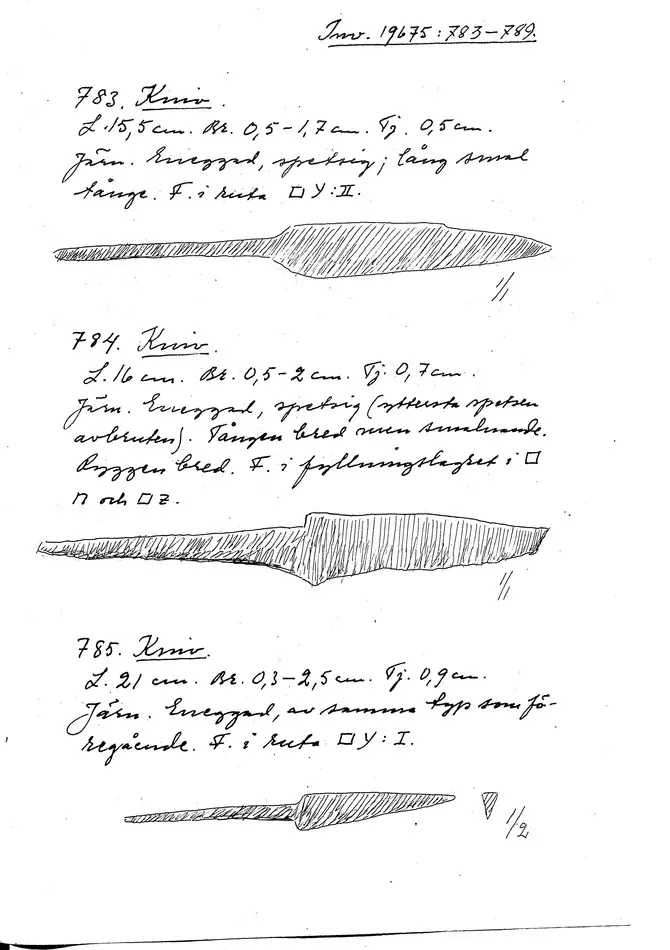 Inv. 19675:783–789.
783. Kniv.
L. 15,5 cm. Br. 0,5–1,7 cm. Tj. 0,5 cm.
Järn. Eneggad, spetsig; lång smal
tånge. F. i ruta □ Y:II.
1/1
784. Kniv.
L. 16 cm. Br. 0,5–2 cm. Tj. 0,7 cm.
Järn. Eneggad, spetsig (yttersta spetsen
avbruten). Tången bred men smalnande.
Ryggen bred. F. i fyllningslagret i □
och □ Z.
1/1
785. Kniv.
L. 21 cm. Br. 0,3–2,5 cm. Tj. 0,9 cm.
Järn. Eneggad, av samma typ som fö-
regående. F. i ruta □ Y: I.
1/2